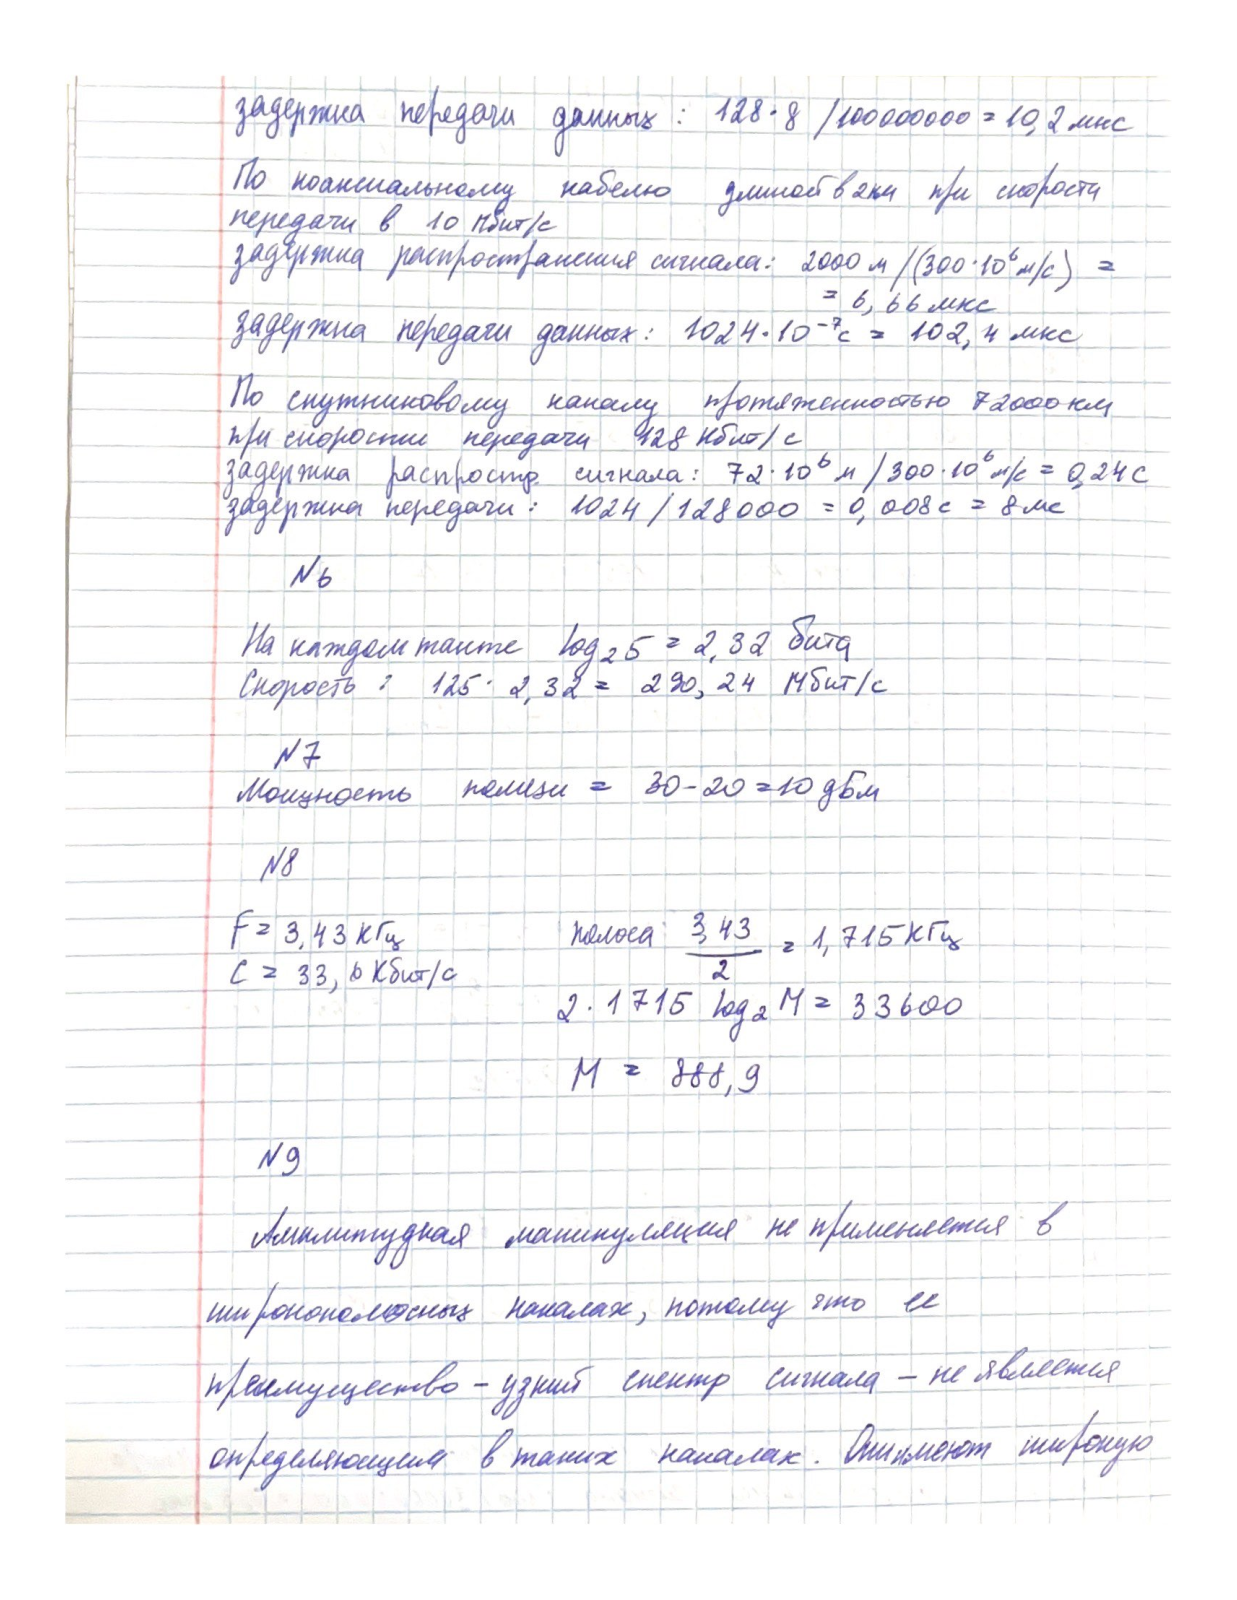 задержка передачи данных: 128·8 /100000000 = 10,2 мкс
По коаксиальному кабелю длиной в 2км при скорости
передачи в 10 Мбит/с
задержка распространения сигнала: 2000 м /(300·10⁶ м/с) =
= 6,66 мкс
задержка передачи данных: 1024·10⁻⁷с = 102,4 мкс
По спутниковому каналу протяженностью 72000 км
при скорости передачи 128 Кбит/с
задержка распростр. сигнала: 72·10⁶ м /300·10⁶ м/с = 0,24 с
задержка передачи: 1024/128000 = 0,008 с = 8 мс
N6
На каждом такте log₂5 = 2,32 бита
Скорость: 125·2,32 = 290,24 Мбит/с
N7
Мощность помехи = 30-20=10 дБм
N8
F = 3,43 КГц полоса 3,43/2 = 1,715 КГц
C = 33,6 Кбит/с
2·1715 log₂M = 33600
M = 888,9
N9
Амплитудная манипуляция не применяется в
широкополосных каналах, потому что ее
преимущество – узкий спектр сигнала – не является
определяющим в таких каналах. Они имеют широкую